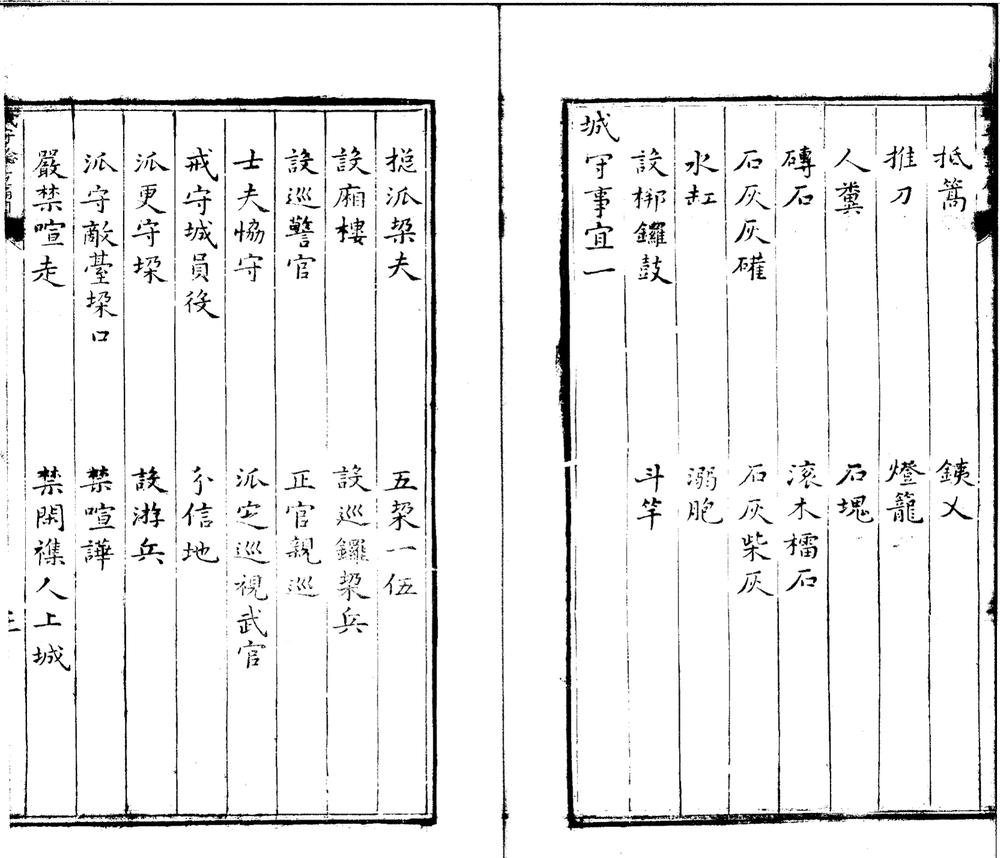 抵篙　鐵乂
推刀　燈籠
人糞　石塊
磚石　滾木檑石
石灰灰礶　石灰柴灰
水缸　溺胞
設梆鑼鼓　斗竿
城守事宜一
搃派垜夫　五垜一伍
設廂樓　設巡鑼垜兵
設巡警官　正官親巡
士夫恊守　派定巡視武官
戒守城員役　分信地
派更守垜　設游兵
派守敵臺垜口　禁喧譁
嚴禁喧走　禁閑襍人上城